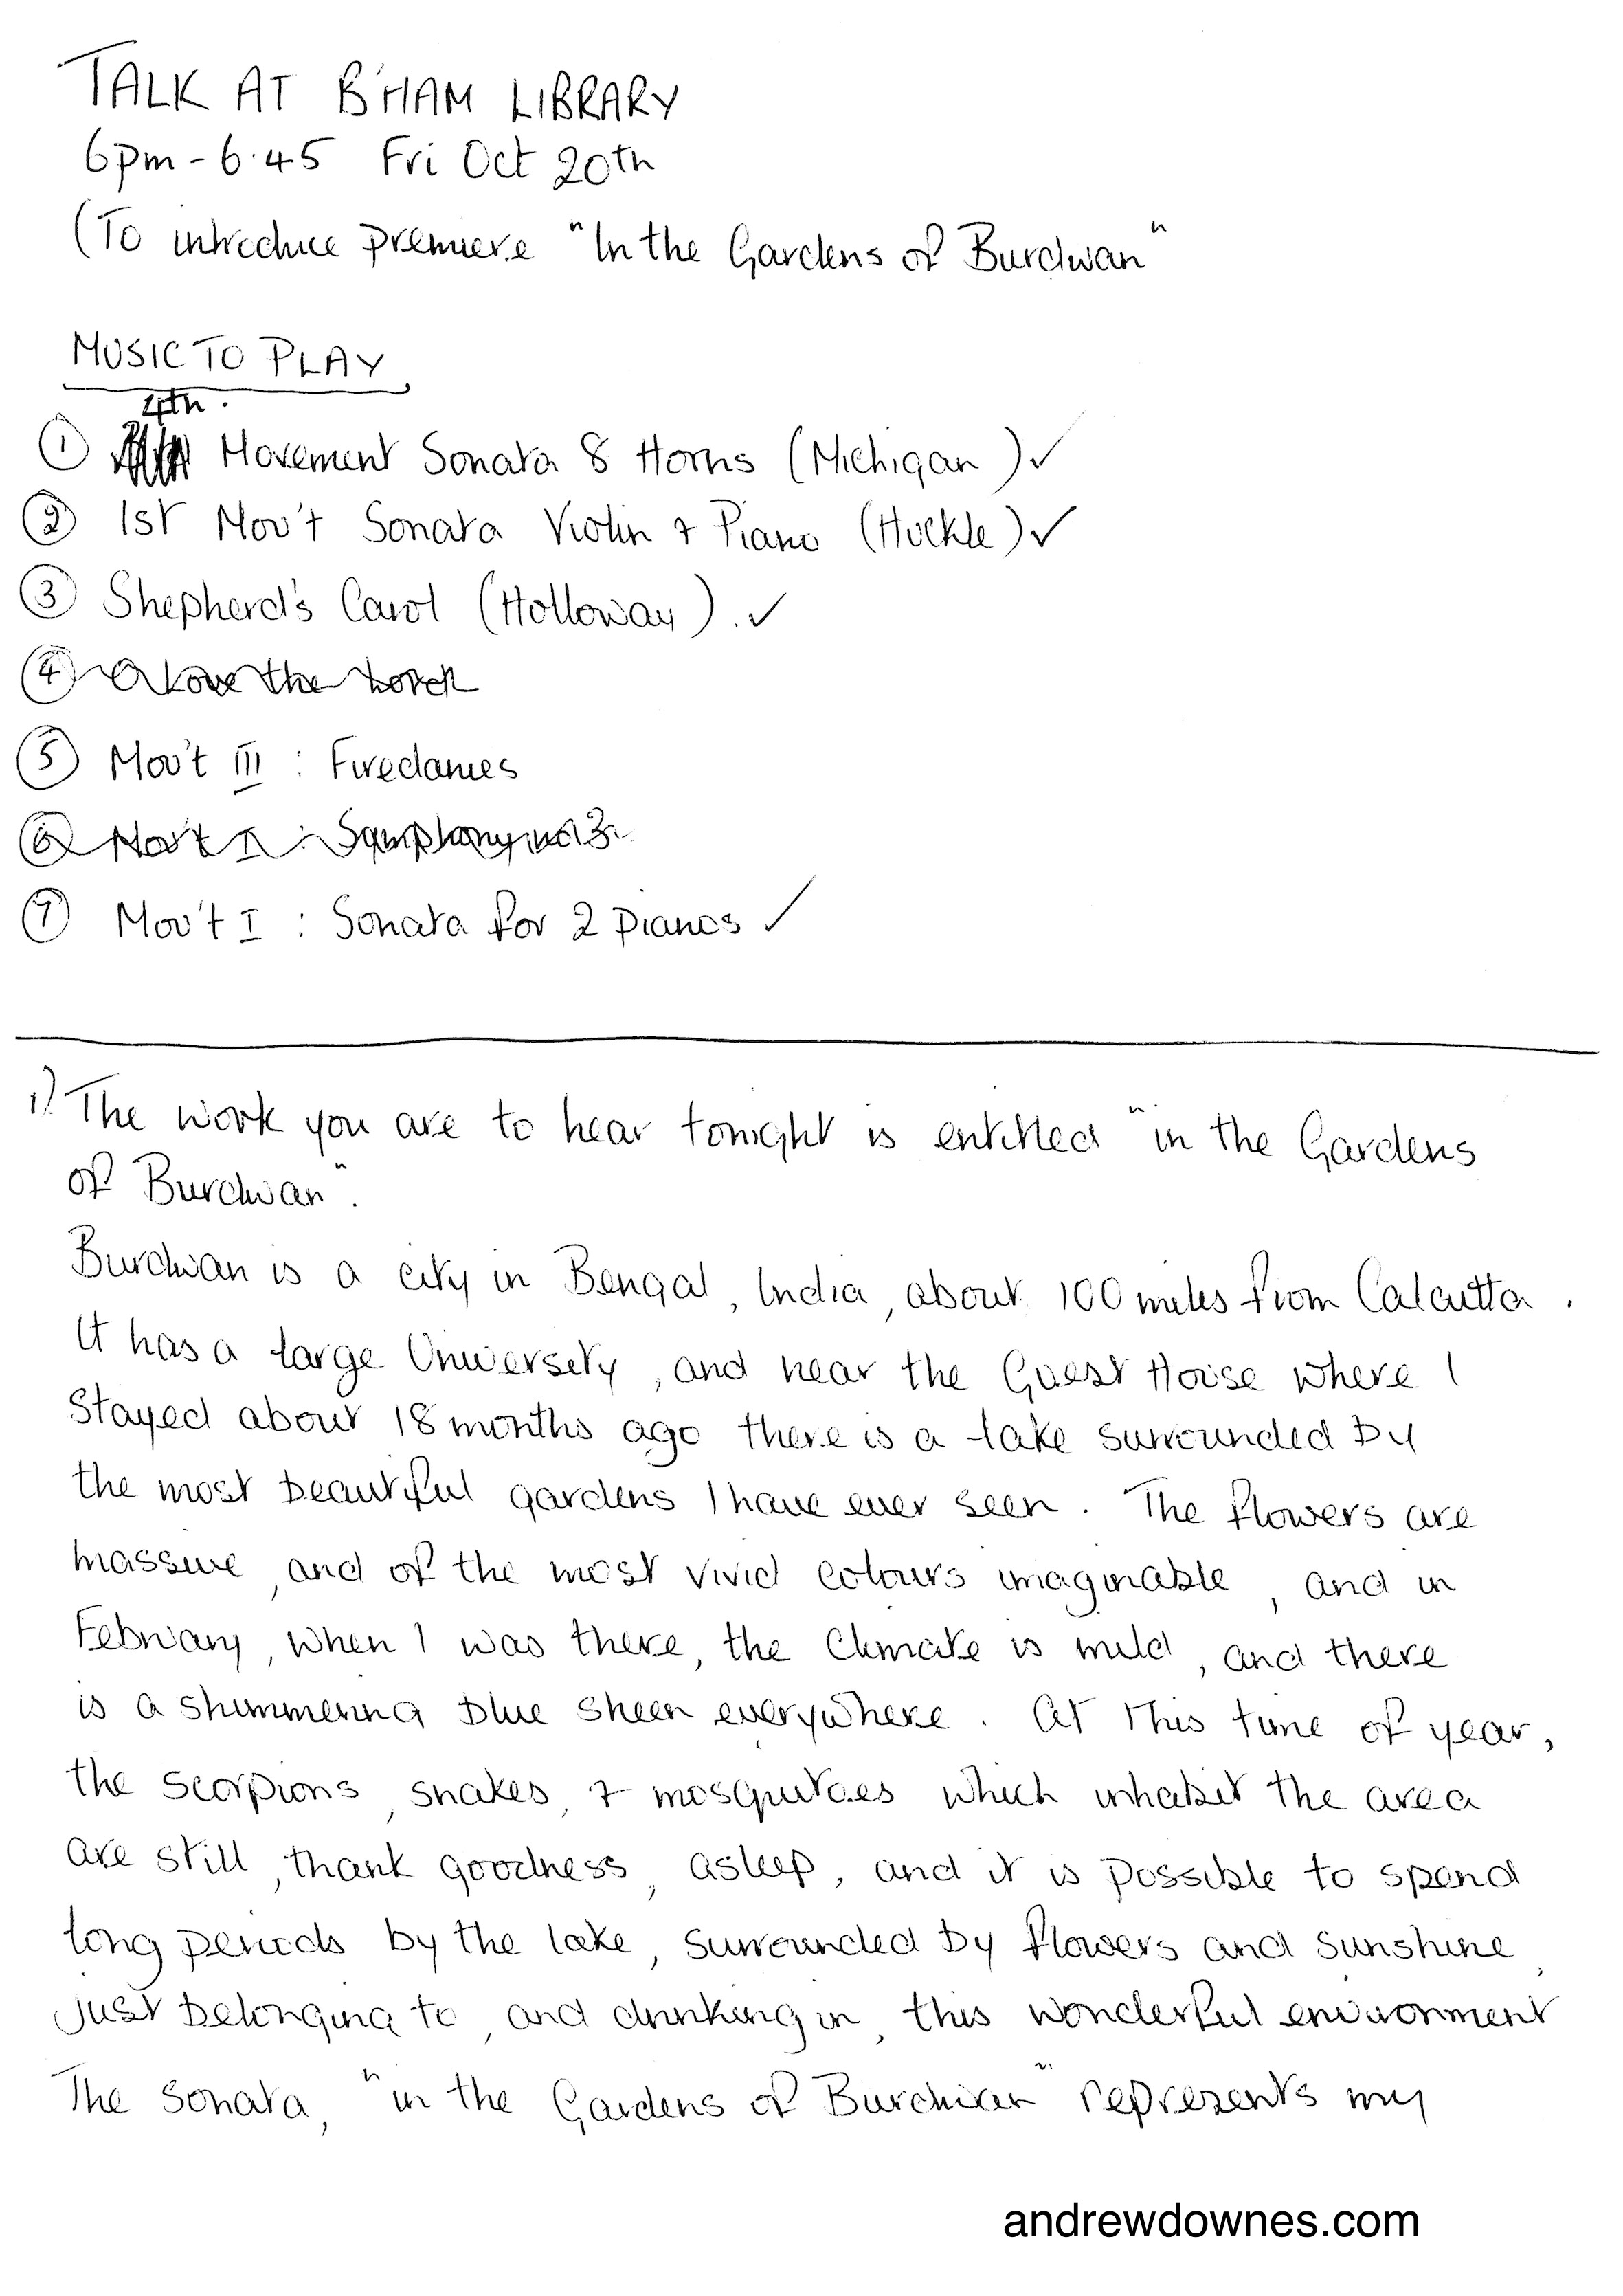 TALK AT B'HAM LIBRARY
6pm - 6.45 Fri Oct 20th
(To introduce premiere "In the Gardens of Burdwan"
MUSIC TO PLAY
4th.
① Movement Sonata 8 Horns (Michigan) ✓
② 1st Mov't Sonata Violin + Piano (Huckle) ✓
③ Shepherd's Carol (Holloway). ✓
④ O Love the Lord
⑤ Mov't III : Firedances
⑥ Mov't I : Symphony no 3.
⑦ Mov't I : Sonata for 2 pianos ✓
1) The work you are to hear tonight is entitled "in the Gardens
of Burdwan".
Burdwan is a city in Bengal, India, about 100 miles from Calcutta.
It has a large University, and near the Guest House where I
stayed about 18 months ago there is a lake surrounded by
the most beautiful gardens I have ever seen. The flowers are
massive, and of the most vivid colours imaginable, and in
February, when I was there, the climate is mild, and there
is a shimmering blue sheen everywhere. At this time of year,
the scorpions, snakes, + mosquitoes which inhabit the area
are still, thank goodness, asleep, and it is possible to spend
long periods by the lake, surrounded by flowers and sunshine,
just belonging to, and drinking in, this wonderful environment
The Sonata, "in the Gardens of Burdwan" represents my
andrewdownes.com